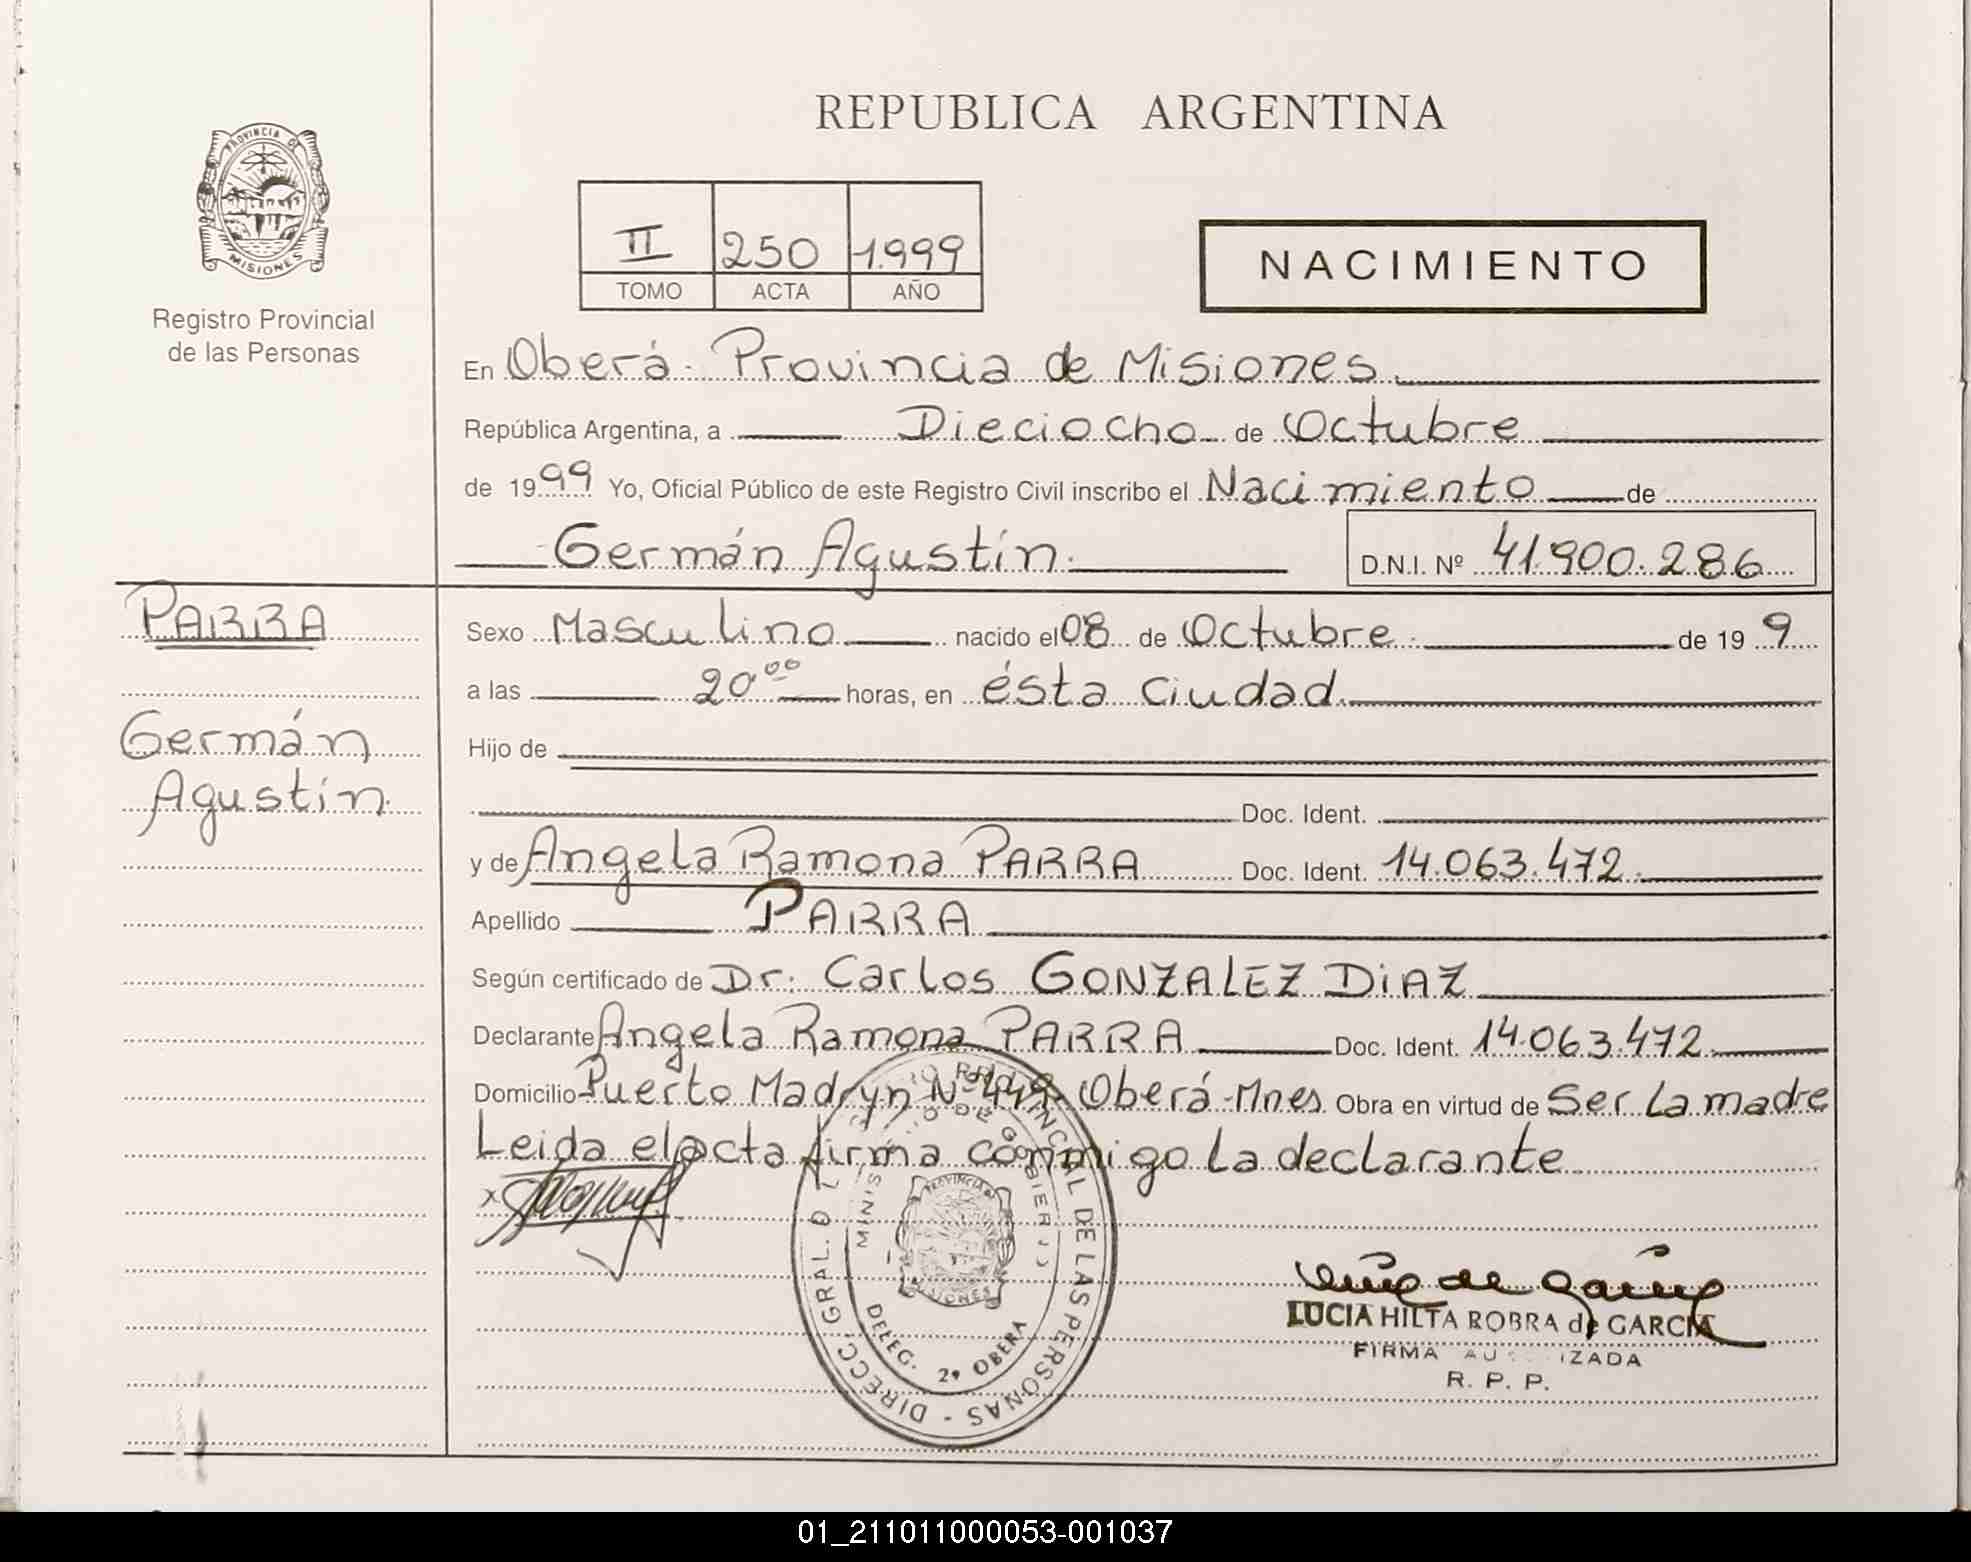 REPUBLICA ARGENTINA
PROVINCIA DE
MISIONES
Registro Provincial
de las Personas
II 250 1.999
TOMO ACTA AÑO
NACIMIENTO
En Oberá. Provincia de Misiones.
República Argentina, a Dieciocho de Octubre
de 1999 Yo, Oficial Público de este Registro Civil inscribo el Nacimiento de
Germán Agustín. D.N.I. Nº 41.900.286
PARRA
Sexo Masculino nacido el 08 de Octubre. de 19 9
a las 20 ºº horas, en ésta Ciudad.
Germán
Agustín.
Hijo de
Doc. Ident.
y de Angela Ramona PARRA Doc. Ident. 14.063.472.
Apellido PARRA
Según certificado de Dr. Carlos GONZALEZ DIAZ
Declarante Angela Ramona PARRA Doc. Ident. 14.063.472.
Domicilio Puerto Madryn Nº Oberá-Mnes. Obra en virtud de Ser La madre
Leida el acta firma conmigo la declarante
DIRECC. GRAL. PROVINCIAL DE LAS PERSONAS -
DELEG. 2ª OBERA
LUCIA HILTA ROBRA de GARCIA
FIRMA AU IZADA
R. P. P.
01_211011000053-001037